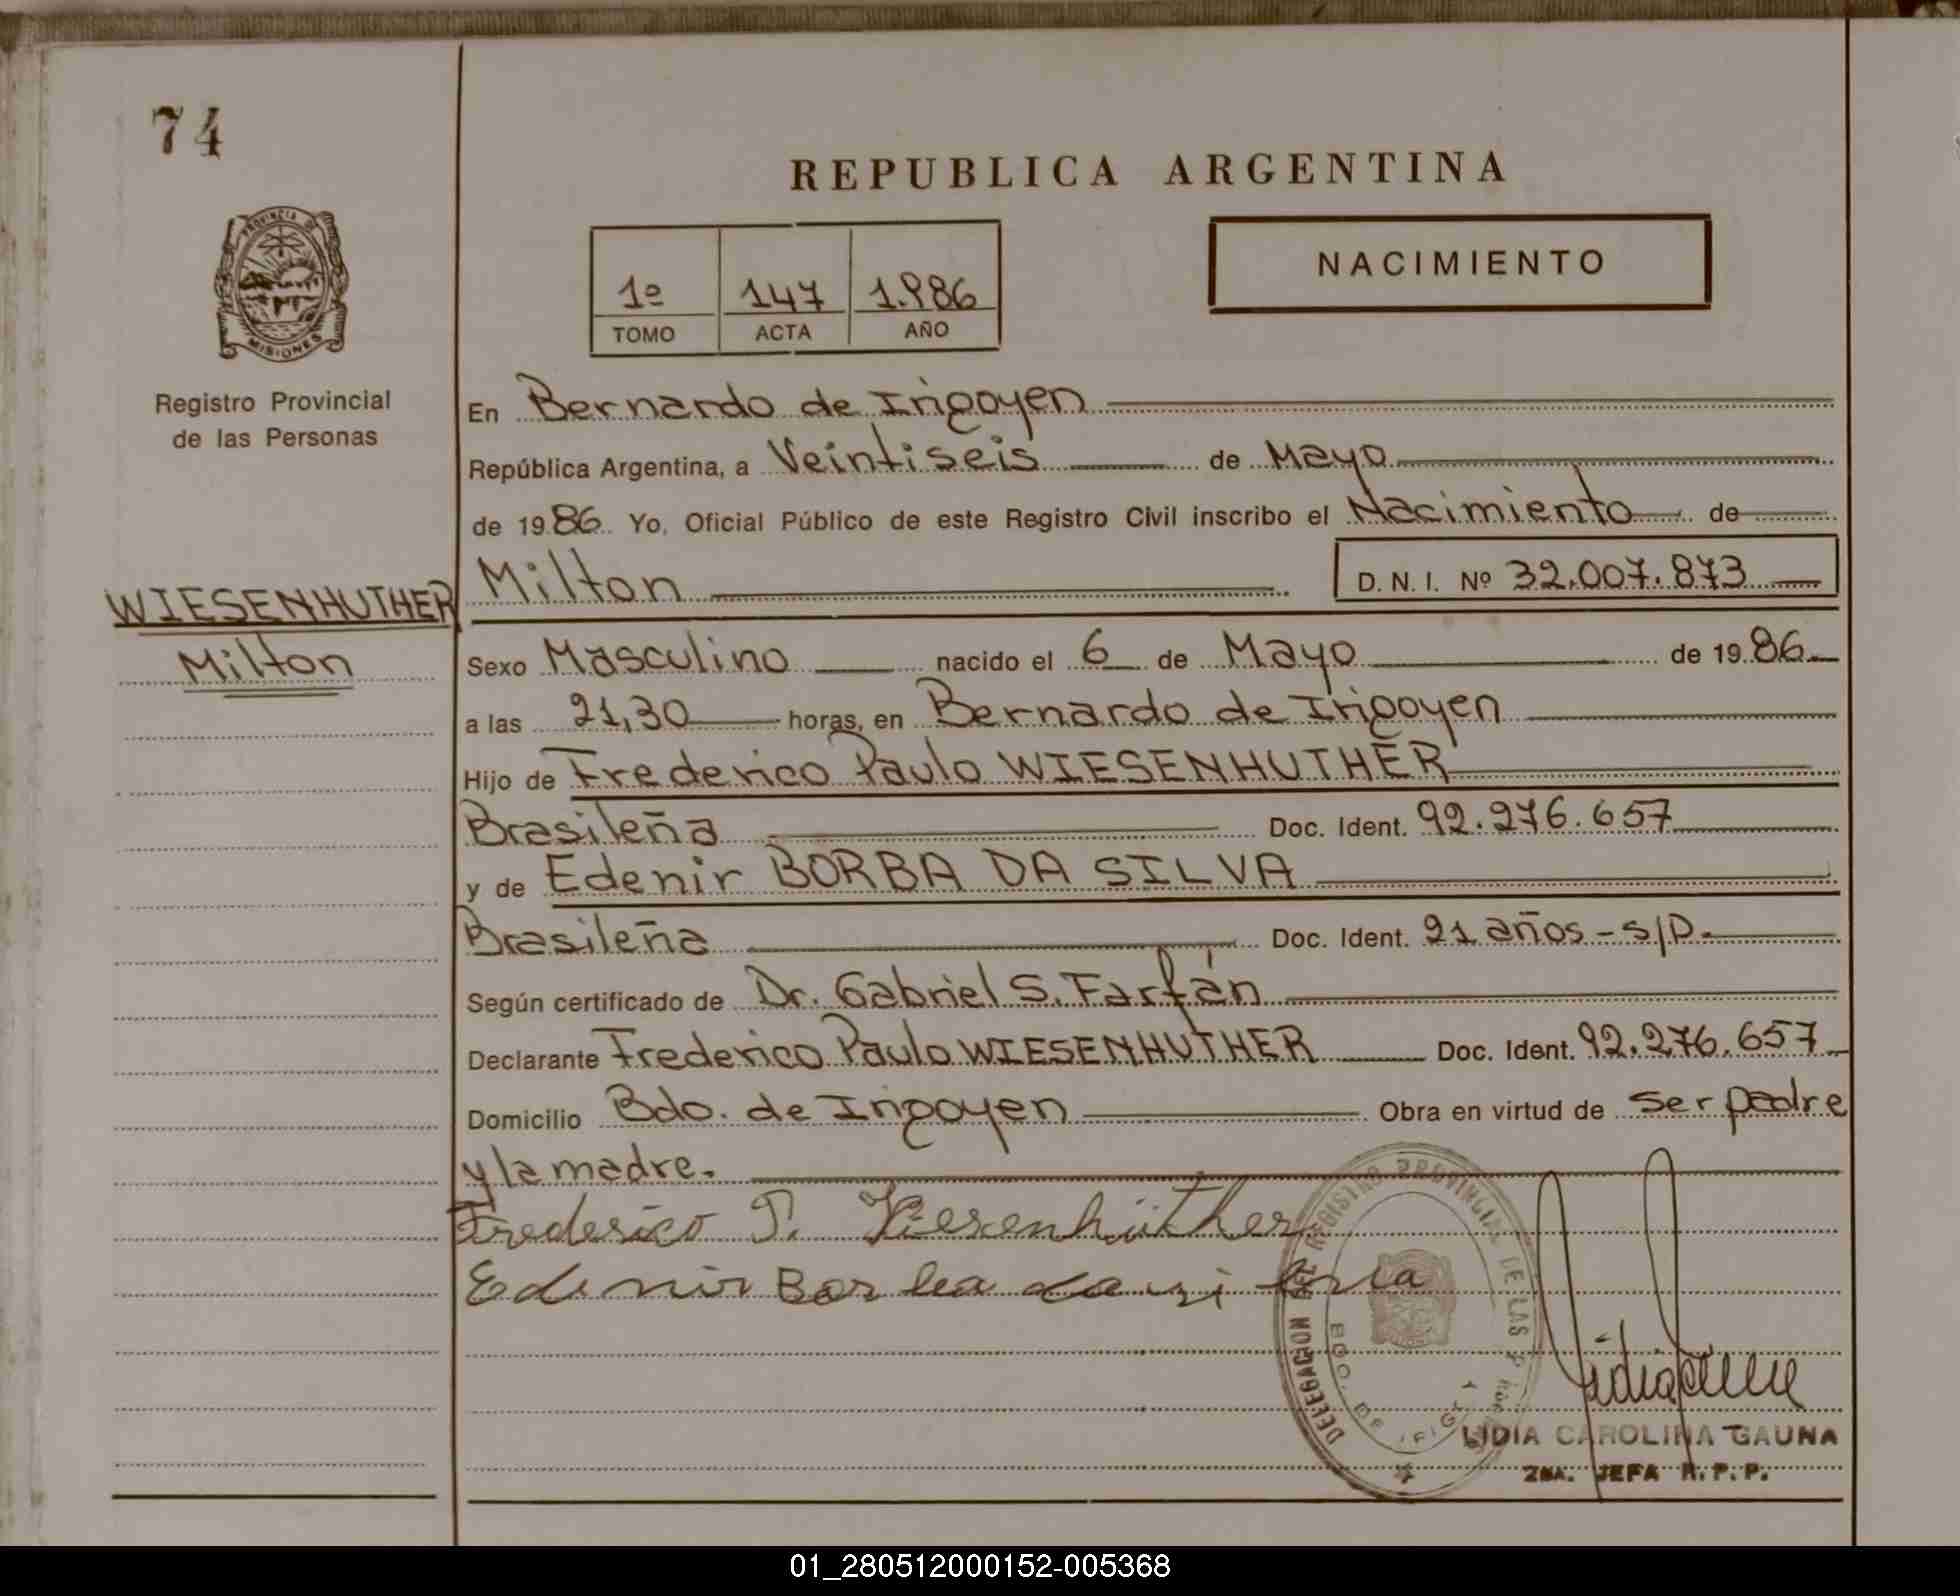 74
REPUBLICA ARGENTINA
PROVINCIA DE
MISIONES
1º 147 1.986
TOMO ACTA AÑO
NACIMIENTO
Registro Provincial
de las Personas
WIESENHUTHER
Milton
En Bernardo de Irigoyen
República Argentina, a Veintiseis de Mayo
de 1986 Yo, Oficial Público de este Registro Civil inscribo el Nacimiento de
Milton D. N. I. Nº 32.007.873
Sexo Masculino nacido el 6 de Mayo de 1986
a las 21,30 horas, en Bernardo de Irigoyen
Hijo de Frederico Paulo WIESENHUTHER
Brasileña Doc. Ident. 92.276.657
y de Edenir BORBA DA SILVA
Brasileña Doc. Ident. 21 años - s/D.
Según certificado de Dr. Gabriel S. Farfán
Declarante Frederico Paulo WIESENHUTHER Doc. Ident. 92.276.657
Domicilio Bdo. de Irigoyen Obra en virtud de ser padre
y la madre.
Frederico P. Wiesenhüther
Edenir Borba da silva
DELEGACION DEL REGISTRO PROVINCIAL DE LAS
BDO. DE IRIGOYEN
LIDIA CAROLINA GAUNA
2DA. JEFA R. P. P.
01_280512000152-005368